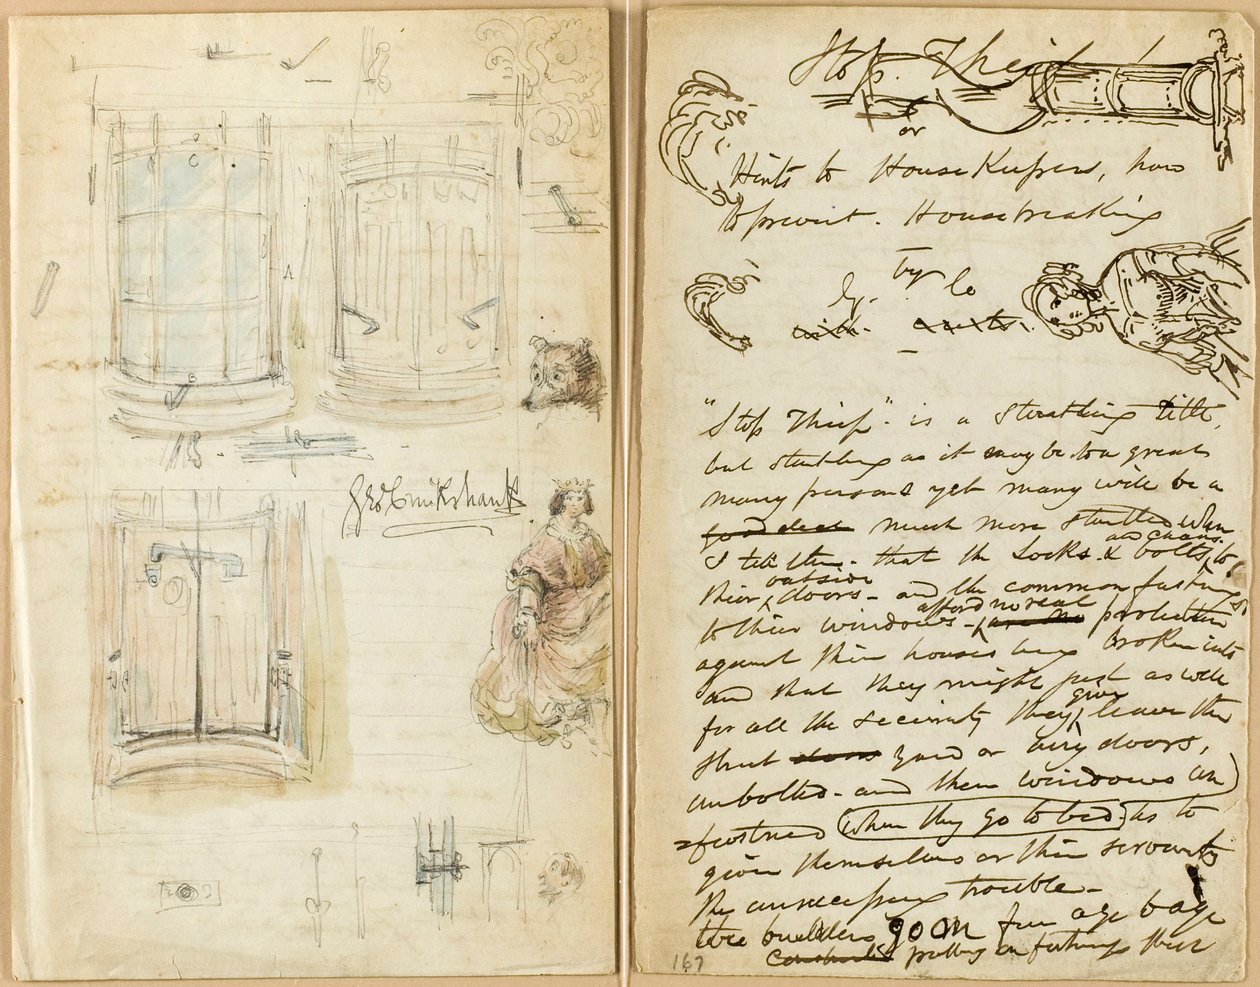 Geo Cruikshank
Stop. Thief!
or
Hints to HouseKeepers, how
to prevent. Housebreaking
by
&c. &c
with. cuts.
"Stop Thief" - is a Startling title,
but startling as it may be to a great
many persons yet many will be a
good deal much more startled when
I tell them - that the Locks. & bolts, and chains. to
their outside doors - and the common fastenings
to their windows - afford no real protection
against their houses being broken into
and that they might just as well
for all the security they give, leave the
street doors yard or area doors,
unbolted - and their windows un
=fastened when they go to bed, as to
give themselves or their servants
the unnecessary trouble -
The builders go on from age to age
putting on fastenings
167